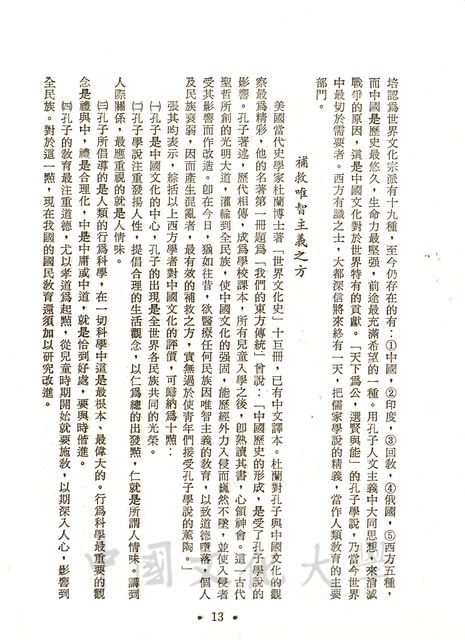 培認爲世界文化宗派有十九種，至今仍存在的有：①中國，②印度，③回教，④俄國，⑤西方五種，
而中國是歷史最悠久，生命力最堅强，前途最充滿希望的一種。用孔子人文主義中大同思想，來消滅
戰爭的原因，這是中國文化對於世界特有的貢獻。「天下爲公，選賢與能」的孔子學說，乃當今世界
中最切於需要者。西方有識之士，大都深信將來終有一天，把儒家學說的精義，當作人類敎育的主要
部門。
補救唯智主義之方
美國當代史學家杜蘭博士著「世界文化史」十巨冊，已有中文譯本。杜蘭對孔子與中國文化的觀
察最爲精彩，他的名著第一冊題爲「我們的東方傳統」曾說：「中國歷史的形成，是受了孔子學說的
影響。孔子著述，歷代相傳，成爲學校課本，所有兒童入學之後，卽熟讀其書，心領神會。這一古代
聖哲所創的光明大道，灌輸到全民族，使中國文化的强固，能歷經外力入侵而巍然不墜，並使入侵者
受其影響而作改造。卽在今日，猶如往昔，欲醫療任何民族因唯智主義的敎育，以致道德墮落，個人
及民族衰弱，因而產生混亂者，最有效的補救之方，實無過於使靑年們接受孔子學說的薰陶。」
張其昀表示，綜括以上西方學者對中國文化的評價，可歸納爲十點：
㈠孔子是中國文化的中心，孔子的出現是全世界各民族共同的光榮。
㈡孔子學說注重發揚人性，提倡合理的生活觀念，以仁爲總的出發點，仁就是所謂人情味。講到
人際關係，最應重視的就是人情味。
㈢孔子所倡導的是人類的行爲科學，在一切科學中這是最根本、最偉大的。行爲科學最重要的觀
念是禮與中，禮是合理化，中是中庸或中道，就是恰到好處，要與時偕進。
㈣孔子的敎育最注重道德，尤以孝道爲起點，從兒童時期開始就要施敎，以期深入人心，影響到
全民族。對於這一點，現在我國的國民敎育還須加以研究改進。
中國文化大學
• 13 •